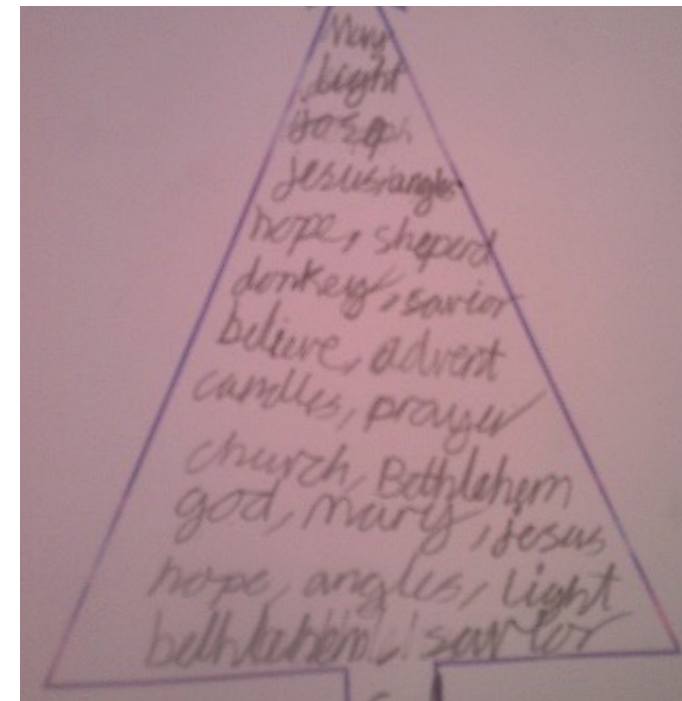 Mary
Light
joseph
jesus, angles
hope, sheperd
donkey, savior
believe, advent
candles, prayer
church, Bethlehem
god, mary, jesus
hope, angles, light
bethlehem, savior